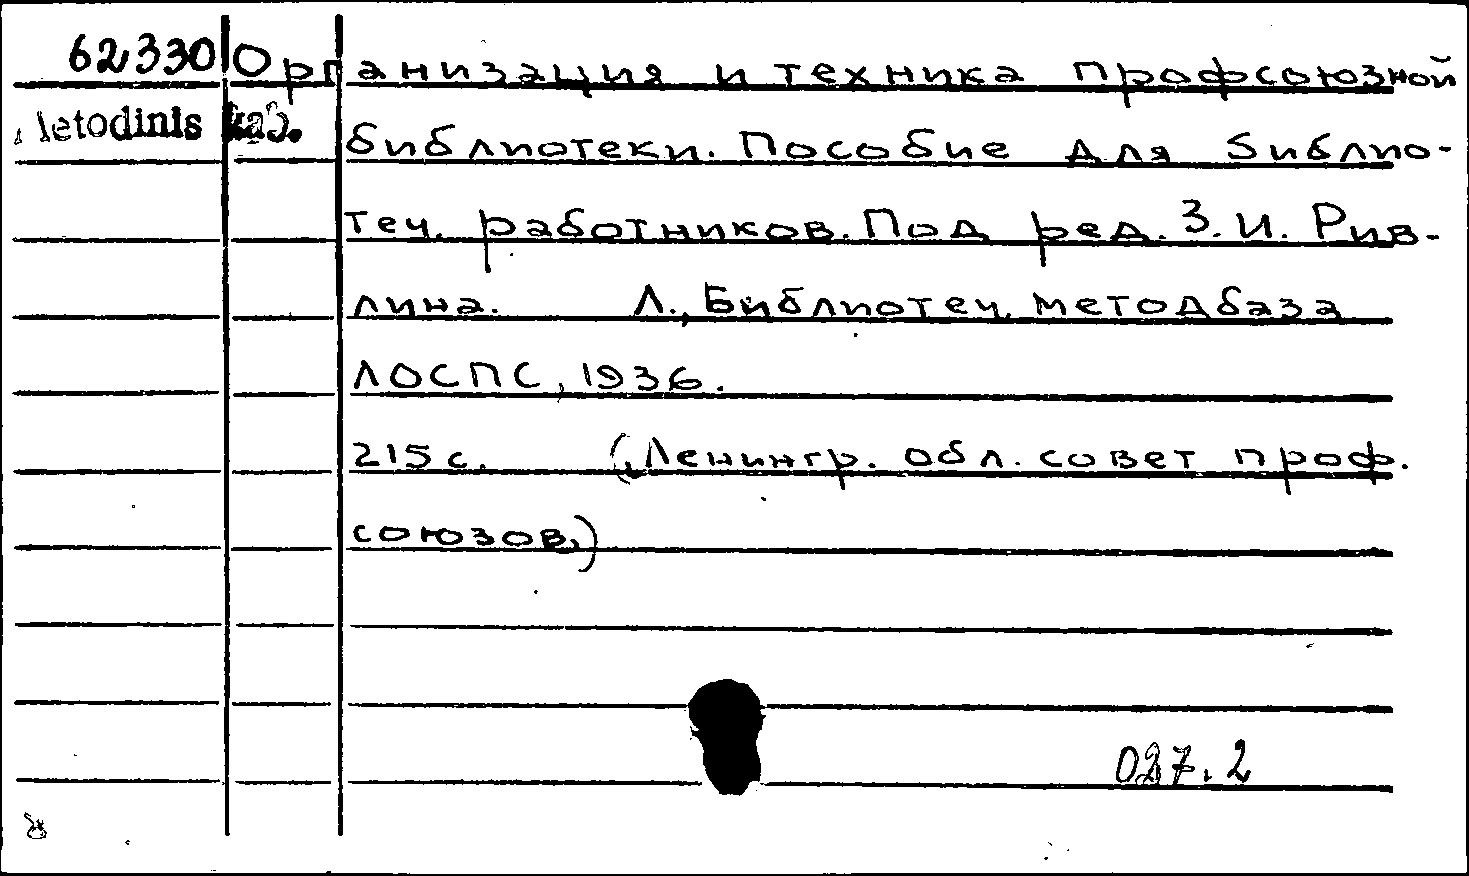 62330 Организация и техника профсоюзной
letodinis kab.
библиотеки. Пособие для библио-
теч. работников. Под ред. З. И. Рив-
лина. Л., Библиотеч. методбаза
ЛОСПС, 1936.
215 с. (Ленингр. обл. совет проф.
союзов.)
027.2